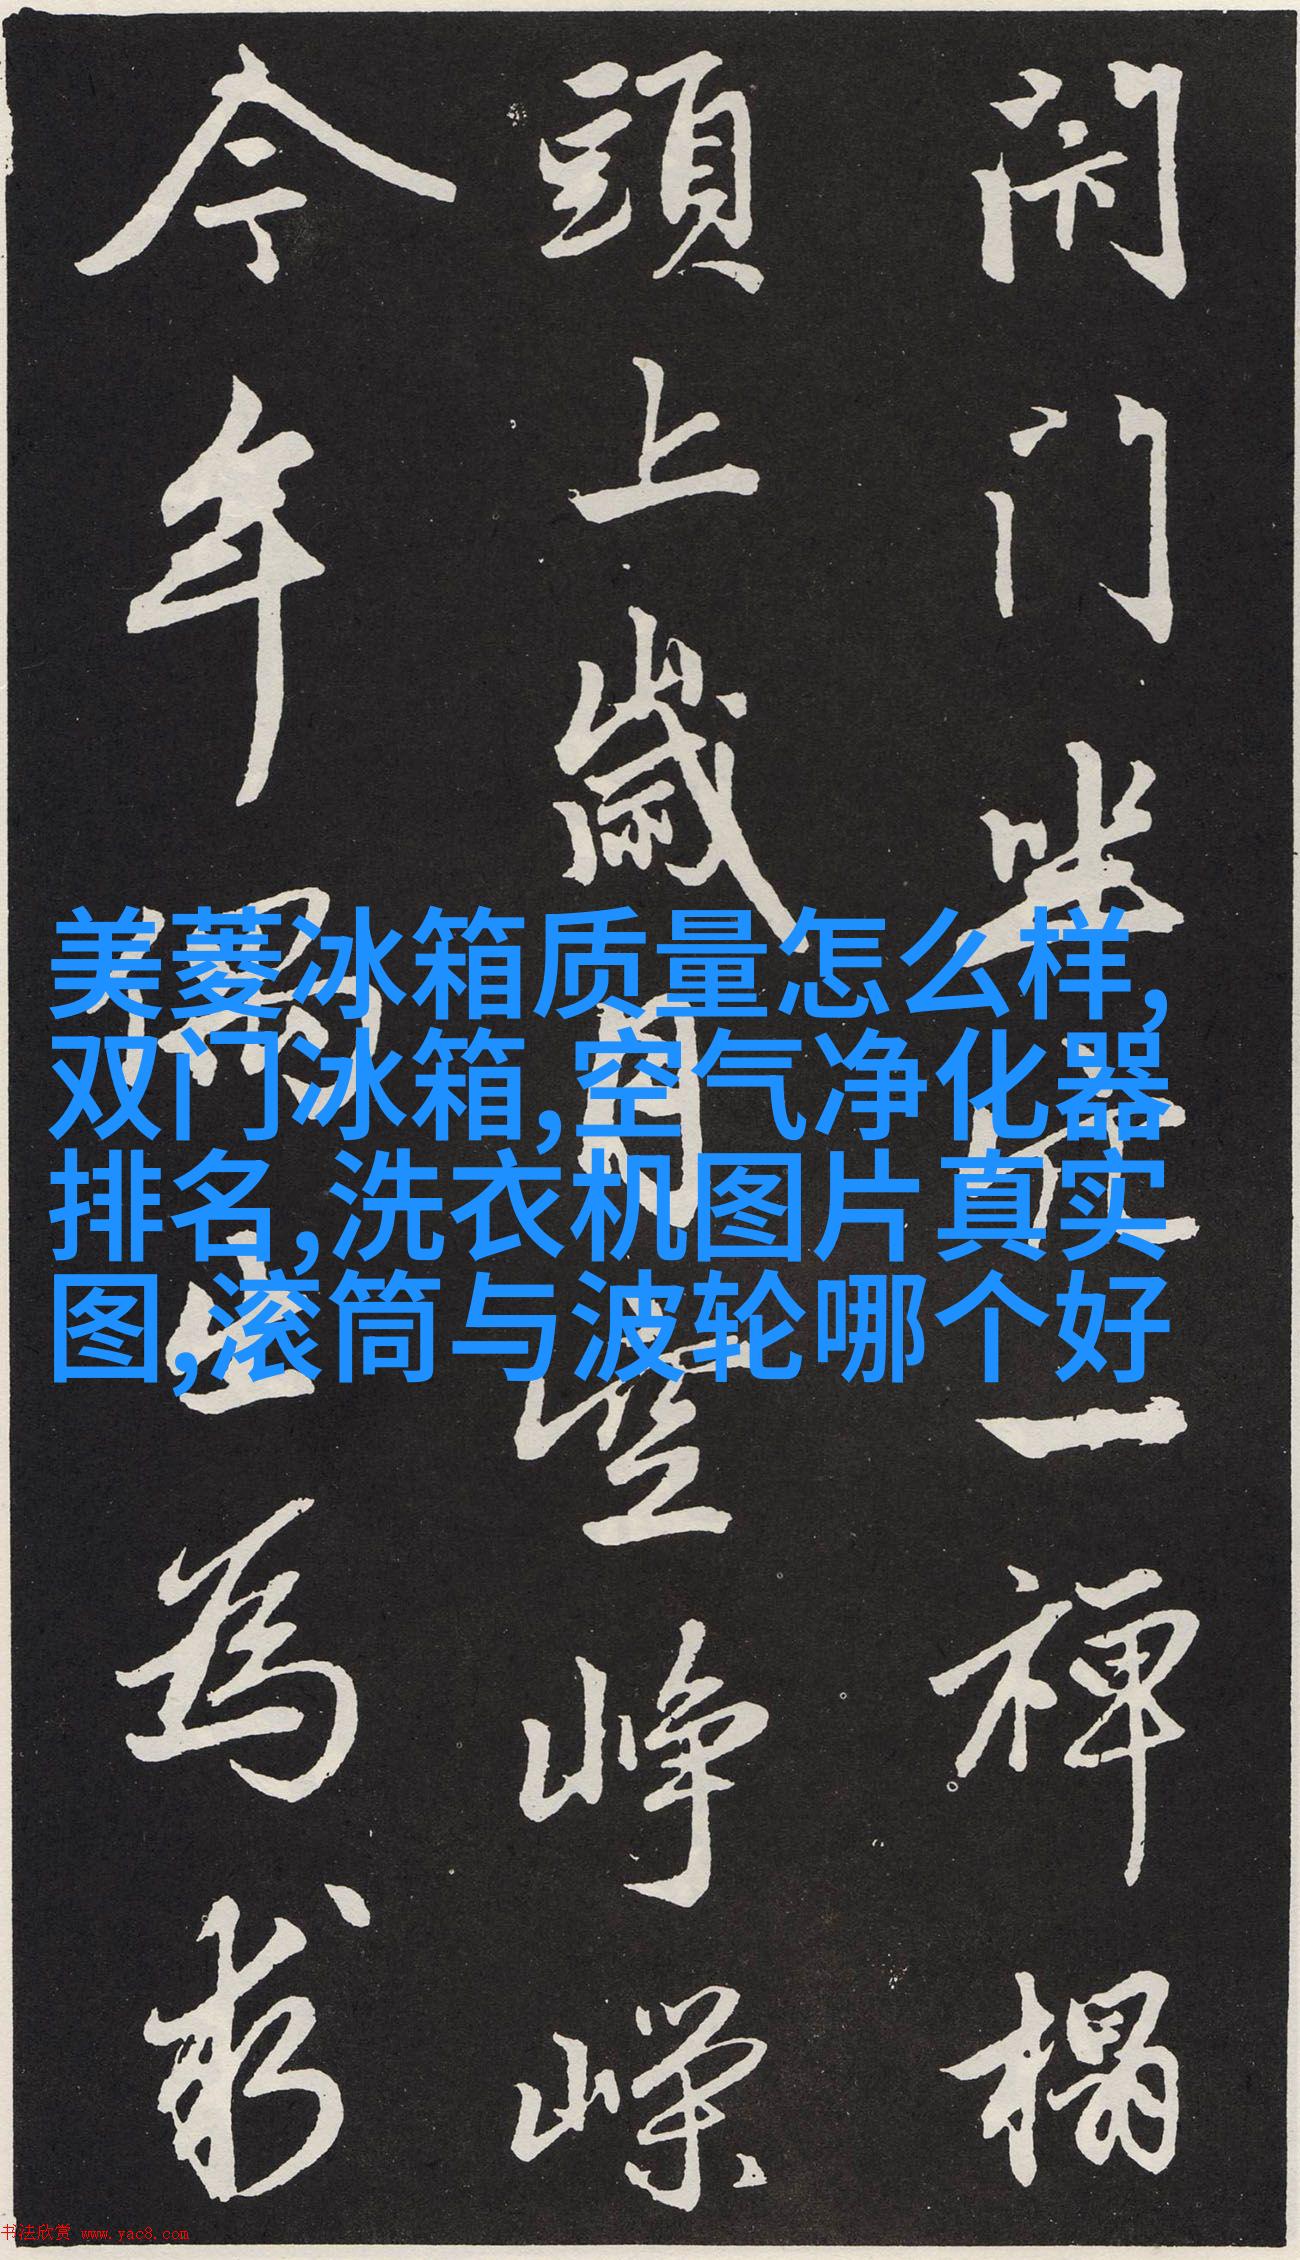 闭门坐穴一禪榻
頭上歲月空崢嶸
今年偶出為求
美菱冰箱质量怎么样,
双门冰箱,空气净化器
排名,洗衣机图片真实
图,滚筒与波轮哪个好
书法欣赏 www.yac8.com